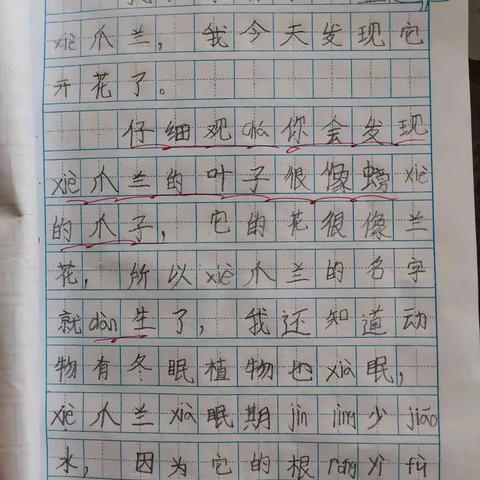 xiè爪兰，我今天发现它
开花了。
仔细观chá你会发现
xiè爪兰的叶子很像螃xiè
的爪子，它的花很像兰
花，所以xiè爪兰的名字
就dàn生了，我还知道动
物有冬眠植物也xià眠，
xiè爪兰xià眠期jìn jǐng少jiāo
水，因为它的根róng yì fǔ